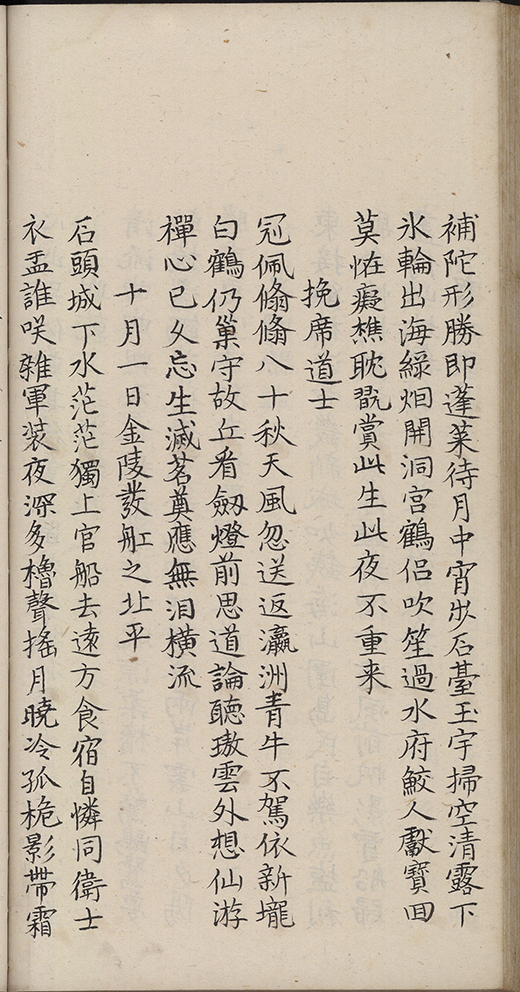 補陀形勝即蓬萊待月中宵步石臺玉宇掃空清露下
氷輪出海綠烟開洞宮鶴侣吹笙過水府鮫人獻寶囬
莫恠癡樵耽翫賞此生此夜不重来
挽席道士
冠佩翛翛八十秋天風忽送返瀛洲青牛不駕依新壠
白鶴仍巢守故丘看劔燈前思道論聽璈雲外想仙游
禪心已久忘生滅茗奠應無泪橫流
十月一日金陵發舡之北平
石頭城下水茫茫獨上官船去遠方食宿自憐同衛士
衣盂誰咲雜軍装夜深多櫓聲搖月曉冷孤桅影帶霜